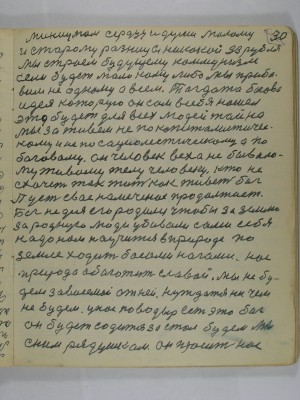 30
минимом сердцу и души малому
и старому разницы никакой за рубля
мы строем будущему коммунизм
если будет мало кому либо мы приба-
вим не одному а всем. Тогда та богова
идея которую он сам в себя нашел
это будет для всех людей тайна
мы за живем не по капиталистиче-
кому и не по социолестическому а по
боговому. он человек веха не бывало-
му живому телу человеку. кто не
схочет так жить как живет бог
Пусть свае намеченое продолжает.
Бог не для его родилу чтобы за землю
за родную люди убивали сами себя
надо нам научится в природе по
земле ходить босыми ногами. нас
природа обогатит славой. Мы не бу-
дем завоемой отней. нуждатя ни чем
не будем. у нас поводыр есть это бог
он будет содится за стол будем мы
с ним рядушкам. он просит нас